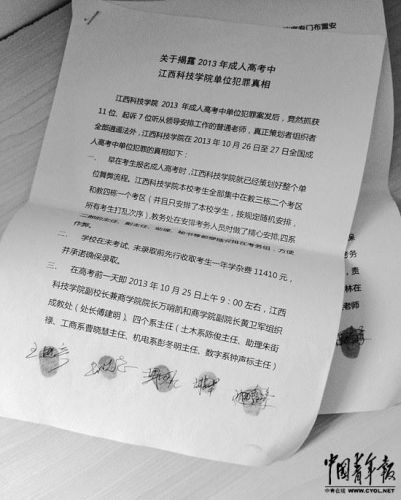 关于揭露2013年成人高考中
江西科技学院单位犯罪真相
江西科技学院2013年成人高考中单位犯罪案发后，竟然抓获
11位、起诉7位听从领导安排工作的普通老师，真正策划者组织者
全部逍遥法外，江西科技学院在2013年10月26日至27日全国成
人高考中单位犯罪的真相如下：
一、早在考生报名成人高考时，江西科技学院就已经策划好整个单
位舞弊流程。江西科技学院本校考生全部集中在教三栋二个考区
和教四栋一个考区（并且只安排了本校学生，按规定随机安排，
所有考生打乱次序），教务处在安排考务人员时做了精心安排，四系
作弊。
二、学校在未考试、未录取前先行收取考生一年学杂费11410元，
并承诺确保录取。
三、在高考前一天即2013年10月25日上午9：00左右，江西
科技学院副校长兼商学院院长万晴凯和商学院副院长黄卫军组织
成教处（处长傅建明）四个系主任（土木系陈俊主任、助理朱街
禄、工商系曹晓慧主任、机电系彭冬明主任、数字系钟声标主任）
专门布置安
中国青年报
中青在线 WWW.CYOL.NET